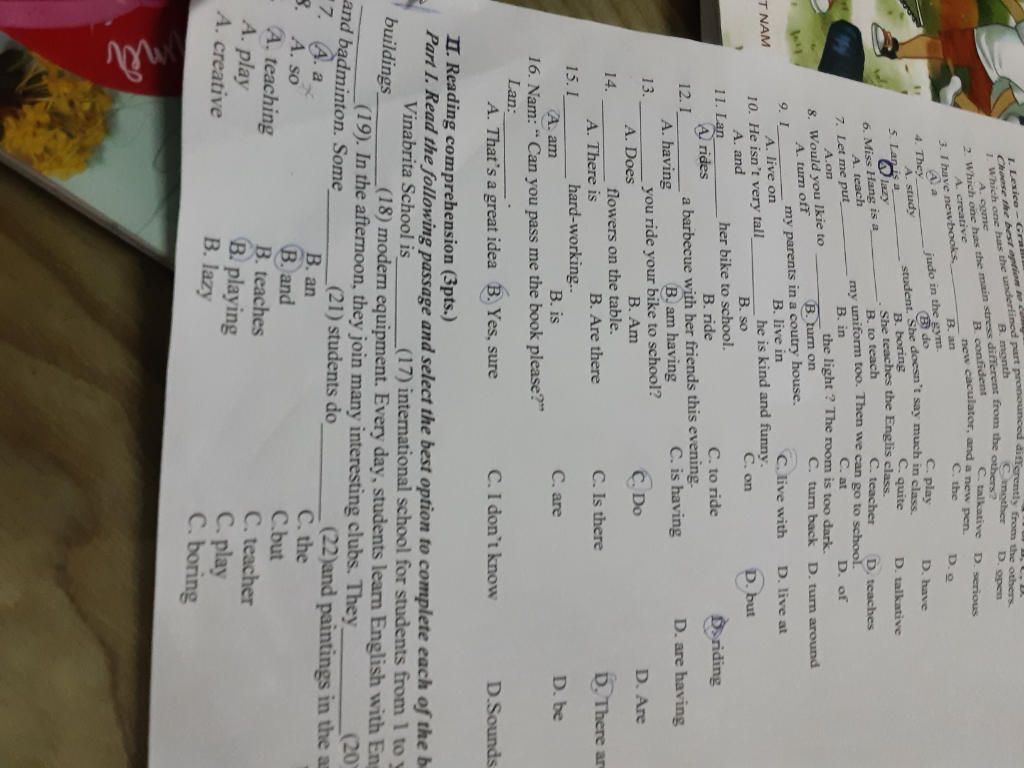 T NAM
I. Lexico – Gramm
Choose the best option to
1. Which one has the underlined part pronounced differently from the others.
A. ogme B. month C. mother D. open
2. Which one has the main stress different from the others?
A. creative B. confident C. talkative D. serious
3. I have newbooks,______ new caculator, and a new pen.
A. a B. an C. the D. o
4. They______ judo in the gym.
A. study B. do C. play D. have
5. Lan is a______ student. She doesn't say much in class.
A. lazy B. boring C. quite D. talkative
6. Miss Hang is a______. She teaches the Englis class.
A. teach B. to teach C. teacher D. teaches
7. Let me put______ my uniform too. Then we can go to school.
A. on B. in C. at D. of
8. Would you lkie to ______ the light ? The room is too dark.
A. turn off B. turn on C. turn back D. turn around
9. I______ my parents in a coutry house.
A. live on B. live in C. live with D. live at
10. He isn't very tall______ he is kind and funny.
A. and B. so C. on D. but
11. Lan______ her bike to school.
A. rides B. ride C. to ride D. riding
12. I______ a barbecue with her friends this evening.
A. having B. am having C. is having D. are having
13. ______ you ride your bike to school?
A. Does B. Am C. Do D. Are
14. ______ flowers on the table.
A. There is B. Are there C. Is there D. There ar
15. I______ hard-working..
A. am B. is C. are D. be
16. Nam: “ Can you pass me the book please?”
Lan:______.
A. That's a great idea B. Yes, sure C. I don't know D.Sounds
II. Reading comprehension (3pts.)
Part 1. Read the following passage and select the best option to complete each of the b
Vinabrita School is______ (17) international school for students from 1 to y
buildings______ (18) modern equipment. Every day, students learn English with Eng
______ (19). In the afternoon, they join many interesting clubs. They______ (20)
and badminton. Some______ (21) students do ______ (22)and paintings in the a
7. A. a B. an C. the
8. A. so B. and C.but
A. teaching B. teaches C. teacher
A. play B. playing C. play
A. creative B. lazy C. boring